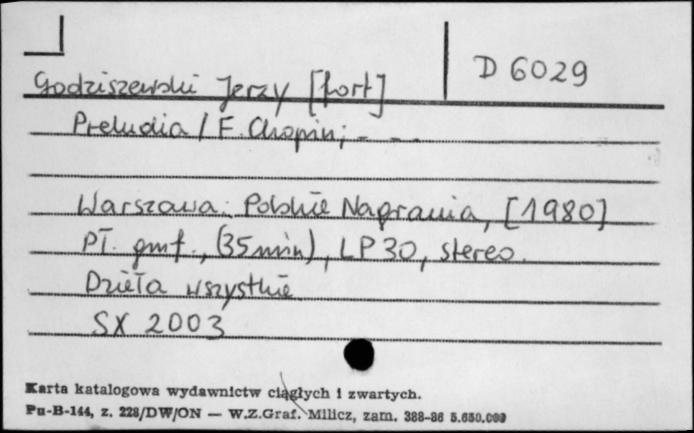 D 6029
Godziszewski Jerzy [fort]
Preludia / F. Chopin; - - -
Warszawa: Polskie Nagrania, [1980]
Pł. gmf., (35 min), LP 30, stereo.
Dzieła wszystkie
SX 2003
Karta katalogowa wydawnictw ciągłych i zwartych.
Pu-B-144, z. 228/DW/ON — W.Z.Graf. Milicz, zam. 388-86 5.650.000